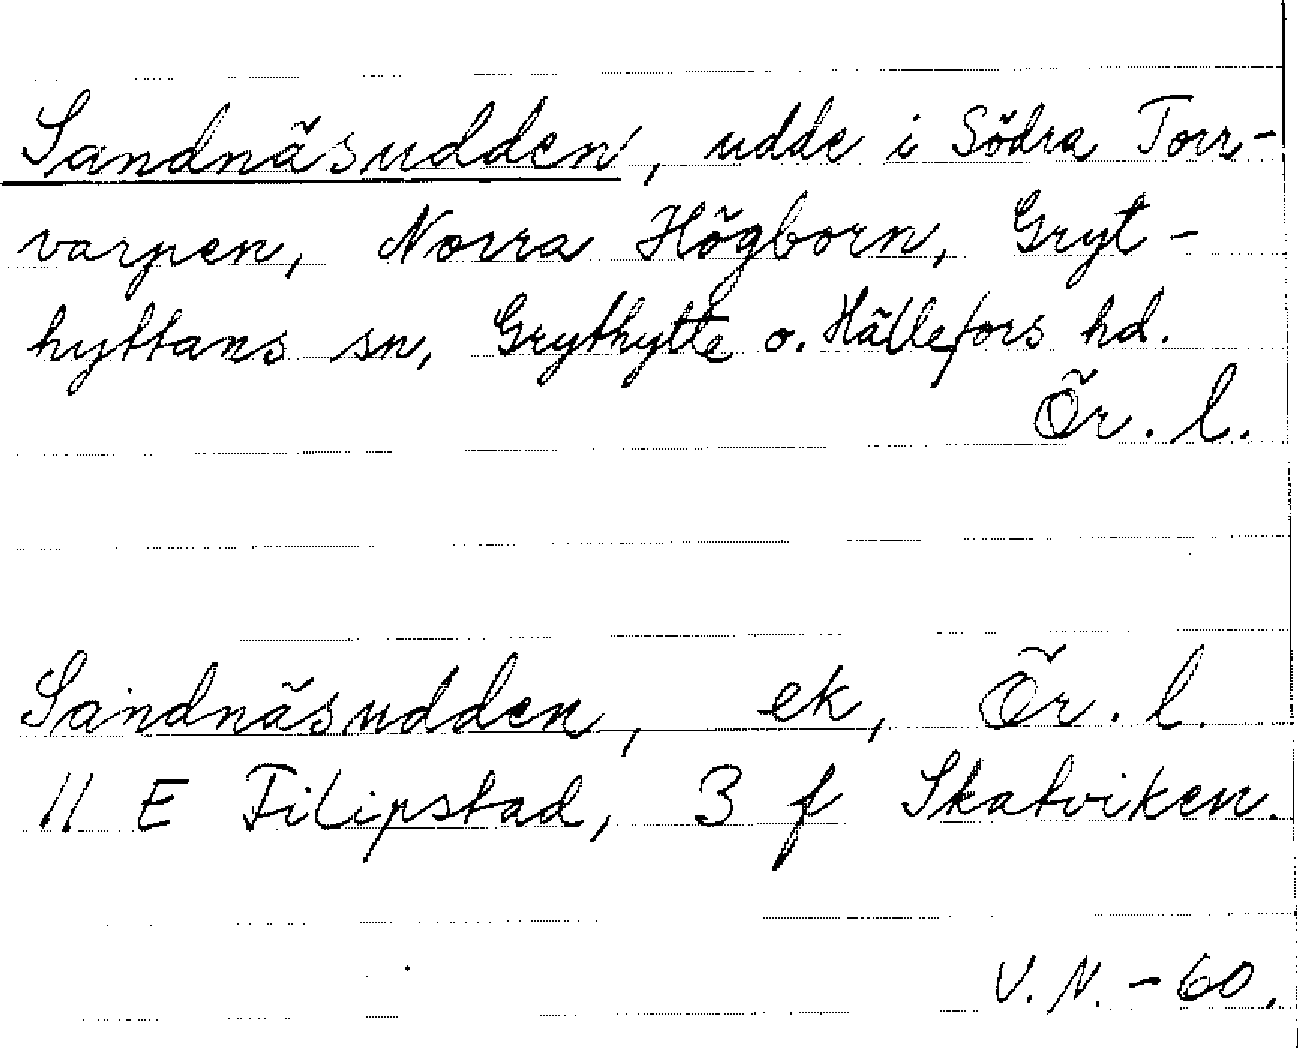 Sandnäsudden, udde i Södra Torr-
varpen, Norra Högborn, Gryt-
hyttans sn, Grythytte o. Hällefors hd.
Ör. l.
Sandnäsudden, ek, Ör. l.
11 E Filipstad, 3 f Skatviken.
V. N. - 60.